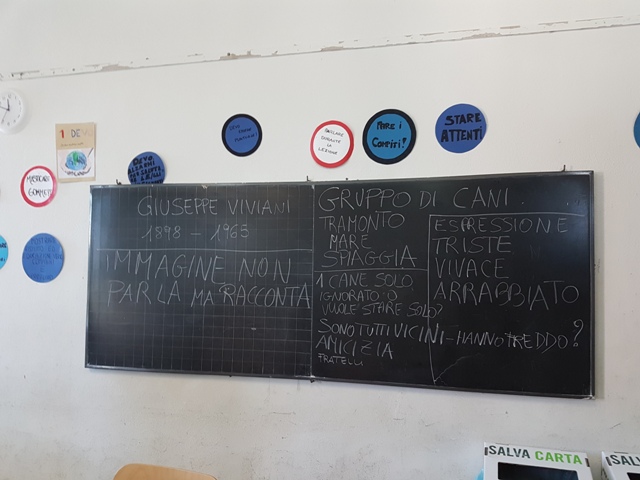 1 DEVI
STARE
ATTENTI
FARE i
COMPITI!
PARLARE
DURANTE
LA
LEZIONE
MASTICARE
GOMME
GIUSEPPE VIVIANI
1898 - 1965
IMMAGINE NON
PARLA MA RACCONTA
GRUPPO DI CANI.
TRAMONTO
MARE
SPIAGGIA
ESPRESSIONE
TRISTE
VIVACE
ARRABBIATO
1 CANE SOLO
IGNORATO O
VUOLE STARE SOLO?
SONO TUTTI VICINI - HANNO FREDDO?
AMICIZIA
FRATELLI
¡SALVA CARTA
¡SALV